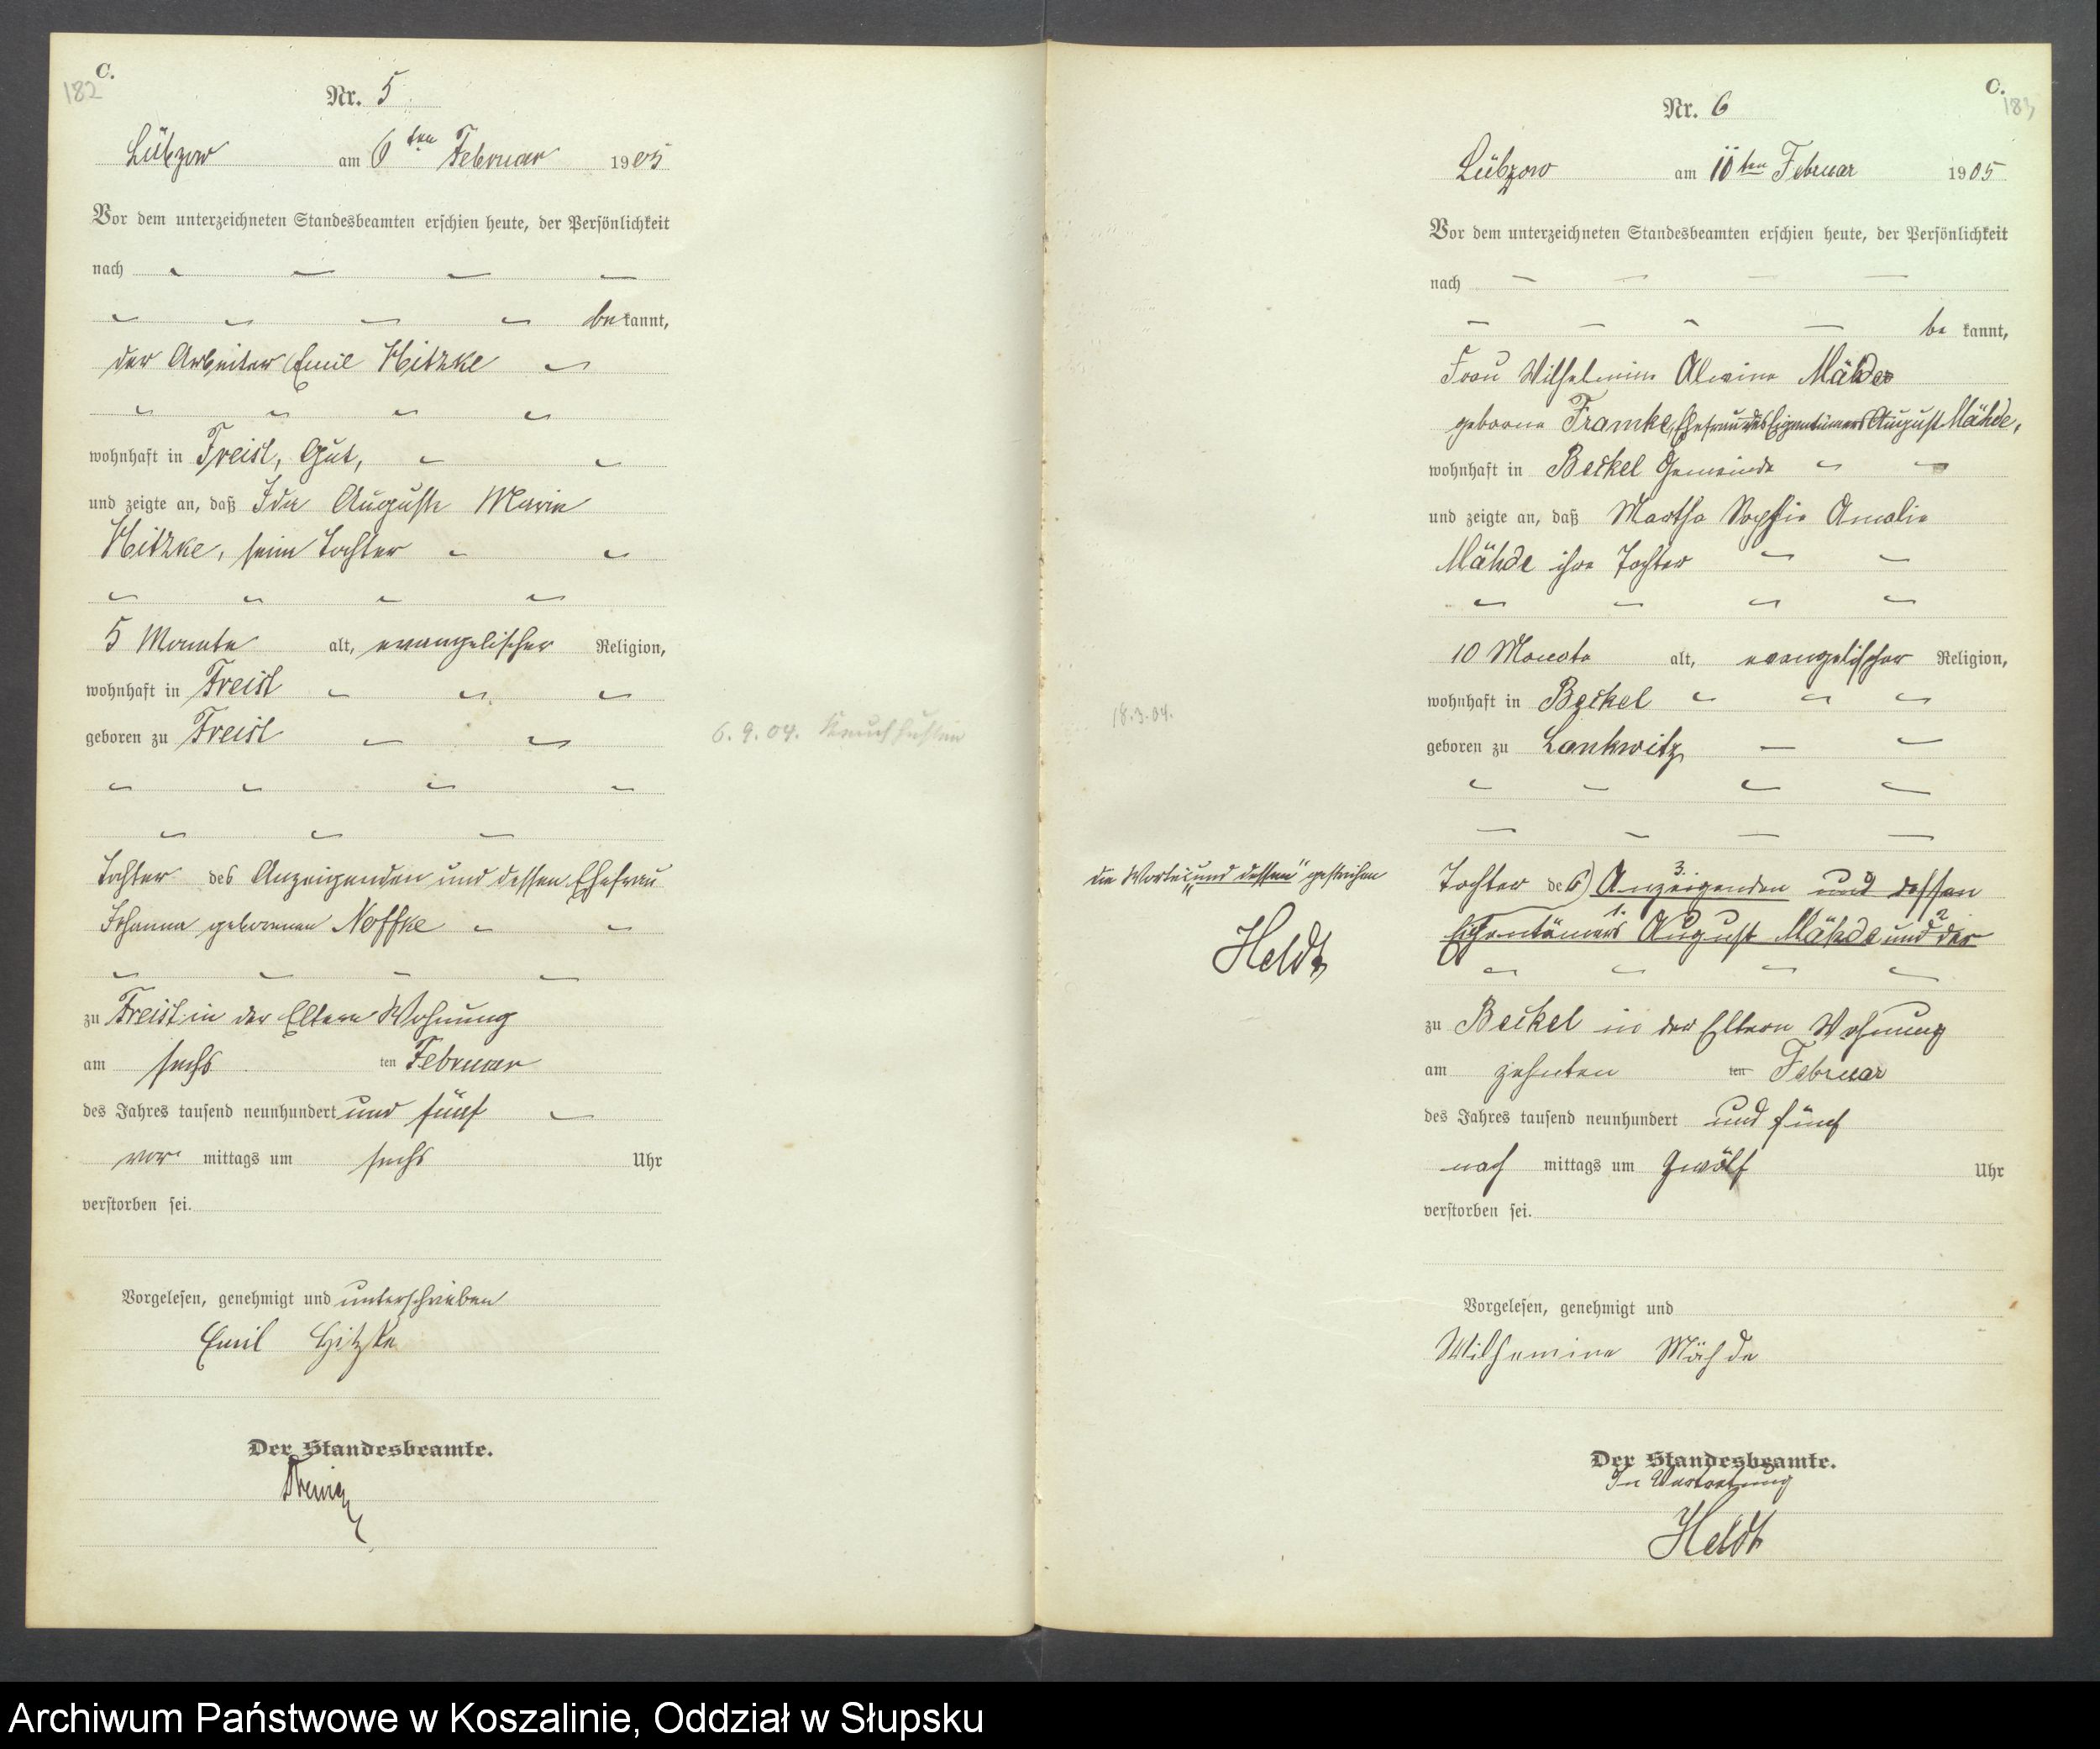 C.
182
Nr. 5
Lübzow am 6ten Februar 1905
Vor dem unterzeichneten Standesbeamten erschien heute, der Persönlichkeit
nach
be kannt,
der Arbeiter Emil Hitzke
wohnhaft in Freist, Gut,
und zeigte an, daß Ida Auguste Marie
Hitzke, seine Tochter
5 Monate alt, evangelischer Religion,
wohnhaft in Freist
geboren zu Freist
6.9.04. Keuchhusten
Tochter des Anzeigenden und dessen Ehefrau
Johanna geborenen Noffke
zu Freist in der Eltern Wohnung
am sechs ten Februar
des Jahres tausend neunhundert und fünf
vor mittags um sechs Uhr
verstorben sei.
Vorgelesen, genehmigt und unterschrieben
Emil Hitzke
Der Standesbeamte.
C.
183
Nr. 6
Lübzow am 10ten Februar 1905
Vor dem unterzeichneten Standesbeamten erschien heute, der Persönlichkeit
nach
be kannt,
Frau Wilhelmine Alwine Mähde
geborne Framke, Ehefrau des Eigentümers August Mähde,
wohnhaft in Beckel Gemeinde
und zeigte an, daß Martha Sophie Amalie
Mähde ihre Tochter
10 Monate alt, evangelischer Religion,
wohnhaft in Beckel
18.3.04.
geboren zu Lankwitz
die Worte: „und dessen" gestrichen
Heldt
Tochter des 3. Anzeigenden und dessen
1. Eigentümers August Mähde 2. und der
zu Beckel in der Eltern Wohnung
am zehnten ten Februar
des Jahres tausend neunhundert und fünf
nach mittags um zwölf Uhr
verstorben sei.
Vorgelesen, genehmigt und
Wilhemine Mähde
Der Standesbeamte.
In Vertretung
Heldt
Archiwum Państwowe w Koszalinie, Oddział w Słupsku